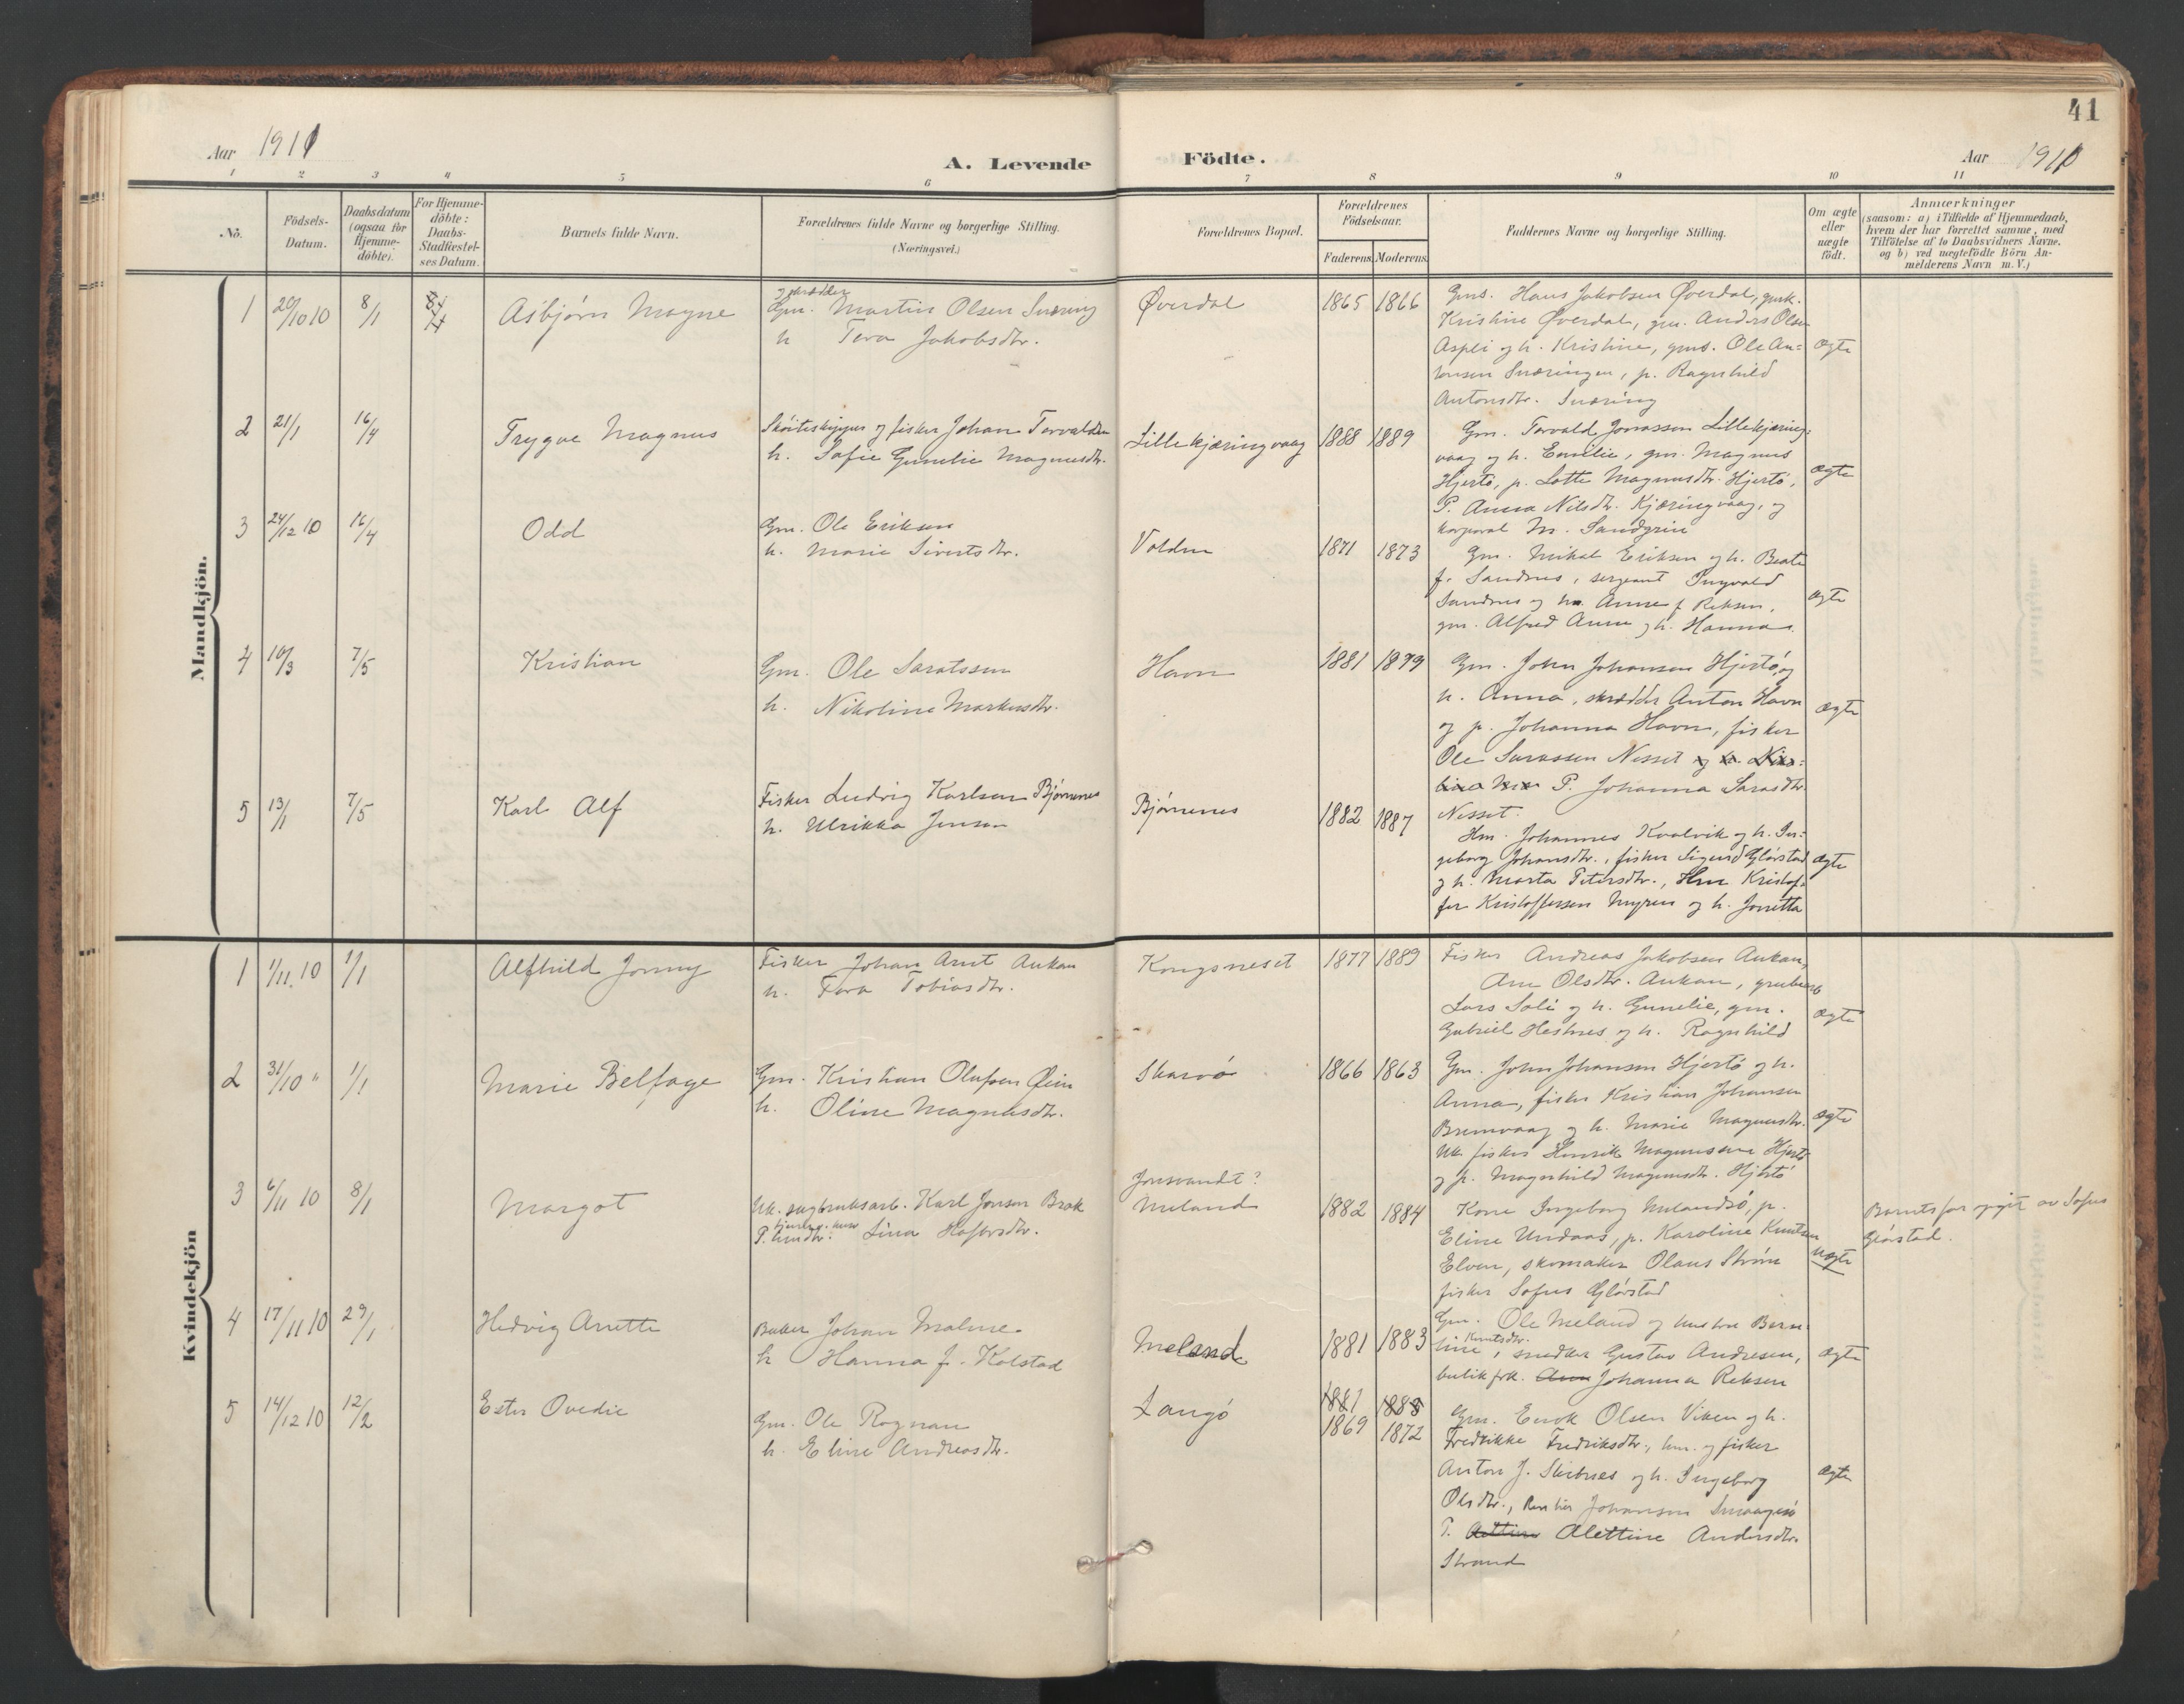 41
Aar 1911
A. Levende Födte.
Aar 1911
1 2 3 4 5 6 7 8 9 10 11
No.
Födsels-Datum.
Daabsdatum (ogsaa for Hjemme-döbte).
For Hjemme-döbte: Daabs-Stadfæstel-ses Datum.
Barnets fulde Navn.
Forældrenes fulde Navne og borgerlige Stilling.
(Næringsvei.)
Forældrenes Bopæl.
Forældrenes Födselsaar.
Faderens. Moderens.
Faddernes Navne og borgerlige Stilling.
Om ægte eller uægte födt.
Anmærkninger
(saasom: a) i Tilfælde af Hjemmedaab,
hvem der har forrettet samme, med
Tilföielse af to Daabsvidners Navne.
og b) ved uægtefödte Börn An-
melderens Navn m. V.)
Mandkjön.
1 20/10 10 8/1 Asbjørn Magne
og skrædder
Gm. Martin Olsen Snæring
h Tera Jakobsdtr.
Øverdal 1865 1866
Gms. Hans Jakobsen Øverdal, gmk.
Kristine Øverdal, gm. Anders Olsen
Aspli og h. Kristine, gms. Ole An=
tonsen Snæringen, p. Ragnhild
Antonsdtr. Snæring
ægte
2 21/1 16/4 Trygve Magnus
Skøiteskipper og fisker Johan Torvaldsen
h. Sofie Gunelie Magnusdtr.
Lillekjæringvaag 1888 1889
Gm. Torvald Jonasson Lillekjæring=
vaag og h. Emelie, gm. Magnus
Hjertö, p. Lotte Magnusdtr. Hjertö,
P. Anna Nilsdtr. Kjæringvaag, og
korporal M. Sandgrin
ægte
3 24/12 10 16/4 Odd
Gm. Ole Eriksen
h. Marie Sivertsdtr.
Volden 1871 1873
Gm. Mikal Eriksen og h. Beate
f. Sandnes, sergeant Ingvald
Sandnes og h. Anne f Reksen,
gm. Alfred Aune og h. Hanna
ægte
4 10/3 7/5 Kristian
Gm. Ole Saratssen
h. Nikoline Markusdtr.
Havn 1881 1879
Gm. John Johansen Hjertö, og
h. Anna, skrædder Anton Havn
og p. Johanna Havn, fisker
Ole Sarassen Nesset og h.
P. Johanna Sarasdtr.
Nesset.
ægte
5 13/1 7/5 Karl Alf
Fisker Ludvig Karlsen Bjørnenes
h. Ulrikka Jensen
Bjørnenes 1882 1887
Hm. Johannes Kvalvik og h. In=
geborg Johansdtr., fisker Sigurd Glørstad
og h. Marta Petersdtr., Hm Kristof=
fer Kristoffersen Myren og h. Jonetta
ægte
Kvindekjön
1 1/11. 10 1/1 Alfhild Jonny
Fisker Johan Arnt Aukan
h. Tora Tobiasdtr.
Kongsneset 1877 1889
Fisker Andreas Jakobsen Aukan,
Ane Olsdtr. Aukan, grubearb
Lars Soli og h. Gunelie, gm.
Gabriel Hestnes og h. Ragnhild
ægte
2 31/10 " 1/1 Marie Belfage
Gm. Kristian Olufsen Øien
h. Oline Magnusdtr.
Skarvö 1866 1863
Gm. John Johansen Hjertö og h.
Anna, fisker Kristian Johansen
Bremvaag og h. Marie Magnusdtr.
Uk. fisker Henrik Magnussen Hjertö
og p. Magnhild Magnusdtr. Hjertö
ægte
3 6/11 10 8/1 Margot
Uk. sagbruksarb. Karl Jonsen Brok
P. Lina Hafersdtr.
Jonsvandt?
Meland 1882 1884
Kone Ingeborg Melandsö, p.
Eline Undaas, p. Karoline Knutsen
Elven, skomaker Olaus Strøm
fisker Sofus Glørstad
uægte
Barnets far opgit av Sofus
Glørstad.
4 17/11 10 29/1 Hedvig Anette
Baker Johan Malme
h Hanna f. Kolstad
Meland 1881 1883
Gm. Ole Meland og hustru Bern=
tine Knutsdtr., snedker Gustav Andresen,
butikfrk. Johanna Reksen
ægte
5 14/12 10 12/2 Ester Ovedie
Gm. Ole Rognan
h. Eline Andreasdtr.
Langö 1881 1885
1869 1872
Gm. Enok Olsen Viken og h.
Fredrikke Fredriksdtr., hm. og fisker
Anton J. Skibnes og h. Ingeborg
Olsdtr., Johansen Smaagesö
P. Alettine Andersdtr.
Strand
ægte